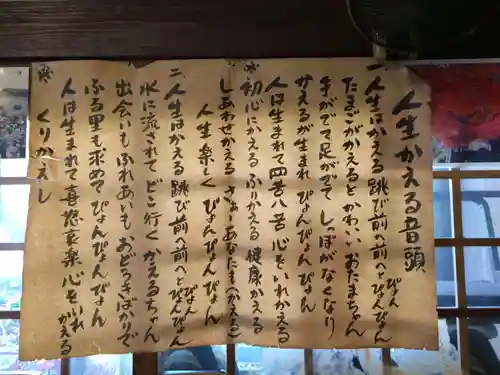 人生かえる音頭
一、人生はかえる 跳び前へ前へとぴょんぴょん
たまごがかえると かわいいおたまちゃん
手がでて足がでて しっぽがなくなり
かえるが生まれ ぴょんぴょんぴょん
人は生まれて四苦八苦 心をいれかえる
※初心にかえる ふりかえる 健康かえる
しあわせかえる さぁーあなたも(かえる)
人生 楽しく ぴょんぴょんぴょん
二、人生はかえる 跳び前へ前へとぴょんぴょん
水に流されて どこ行く かえるちゃん
出会いも ふれあいも おどろきばかりで
ふる里も求めて ぴょんぴょんぴょん
人は生まれて 喜怒哀楽 心をいれかえる
※くりかえし